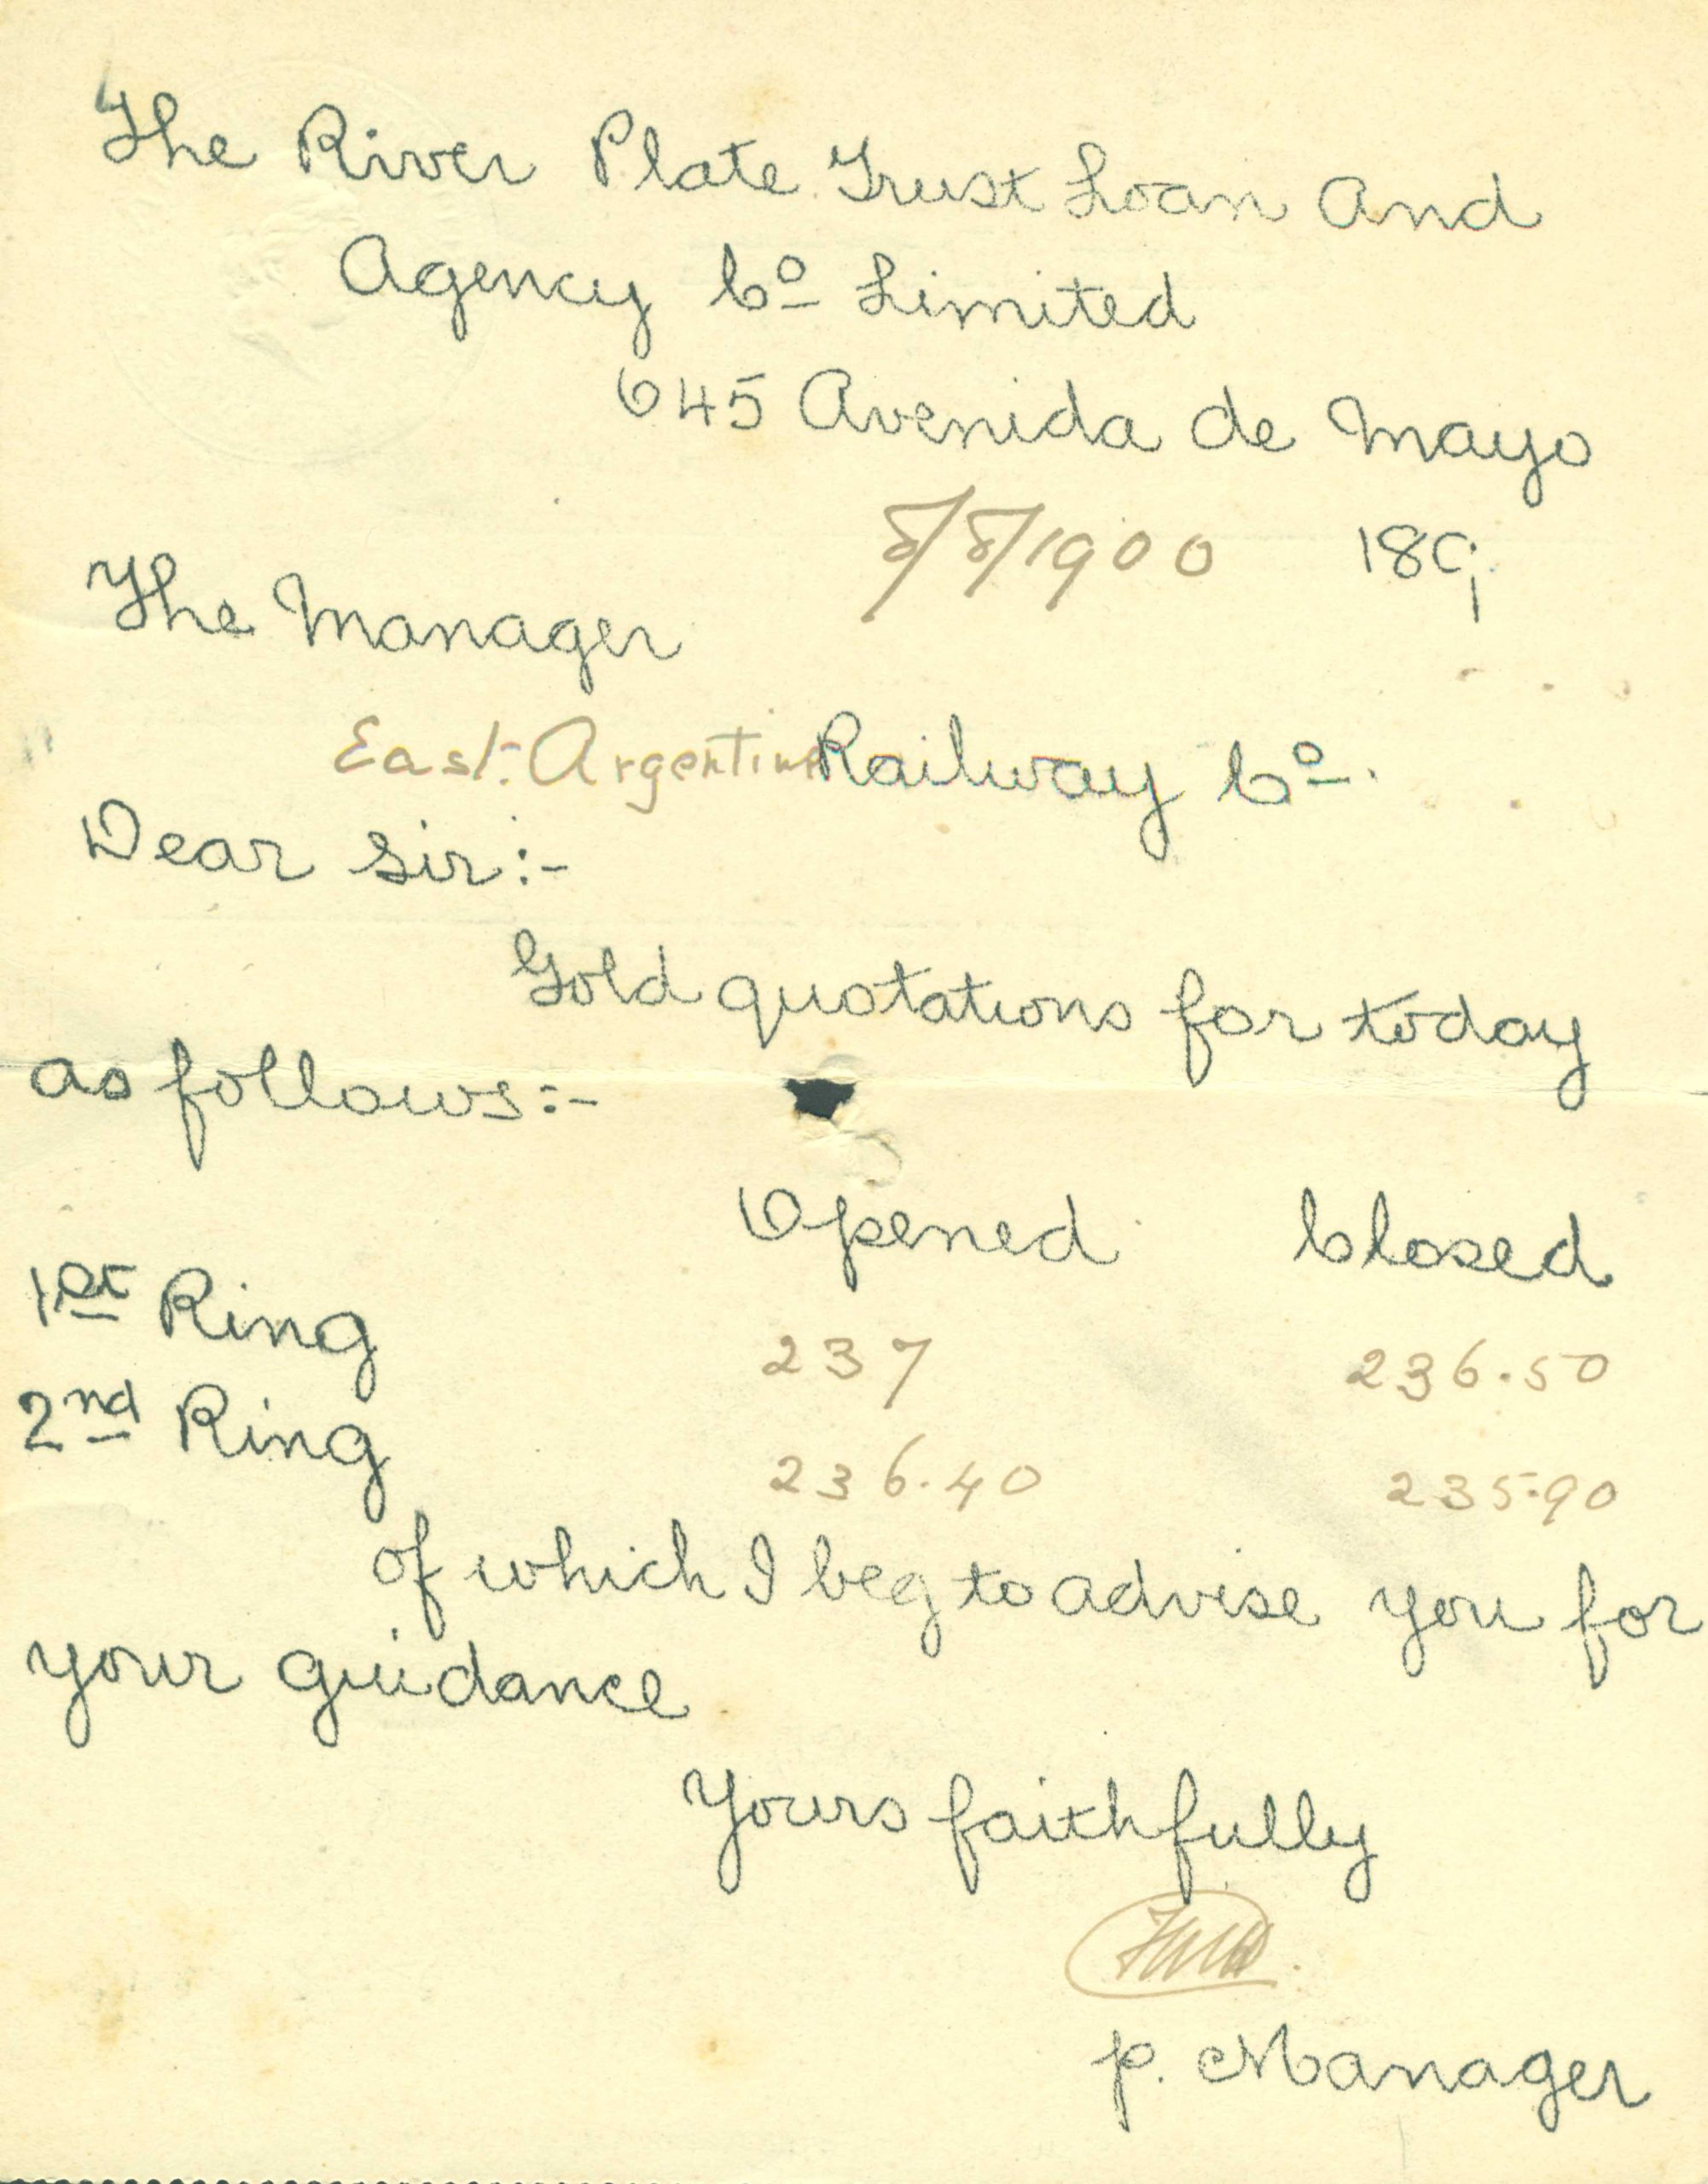 The River Plate Trust Loan And
Agency Cº Limited
645 Avenida de Mayo
8/8/1900 189
The Manager
East. Argentine Railway Cº.
Dear Sir:-
Gold quotations for today
as follows:-
Opened Closed
1st Ring 237 236.50
2nd Ring 236.40 235.90
of which I beg to advise you for
your guidance
Yours faithfully
p. Manager